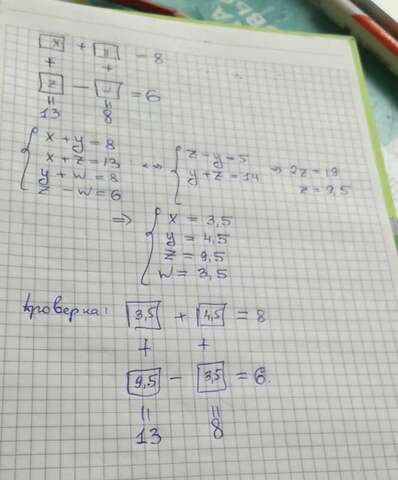 x + y = 8
+ +
z - w = 6
= =
13 8
x + y = 8
x + z = 13
y + w = 8
z - w = 6
⇔
z - y = 5
y + z = 14
⇒ 2z = 19
z = 9,5
⇒
x = 3,5
y = 4,5
z = 9,5
w = 3,5
Проверка: 3,5 + 4,5 = 8
+ +
9,5 - 3,5 = 6.
= =
13 8